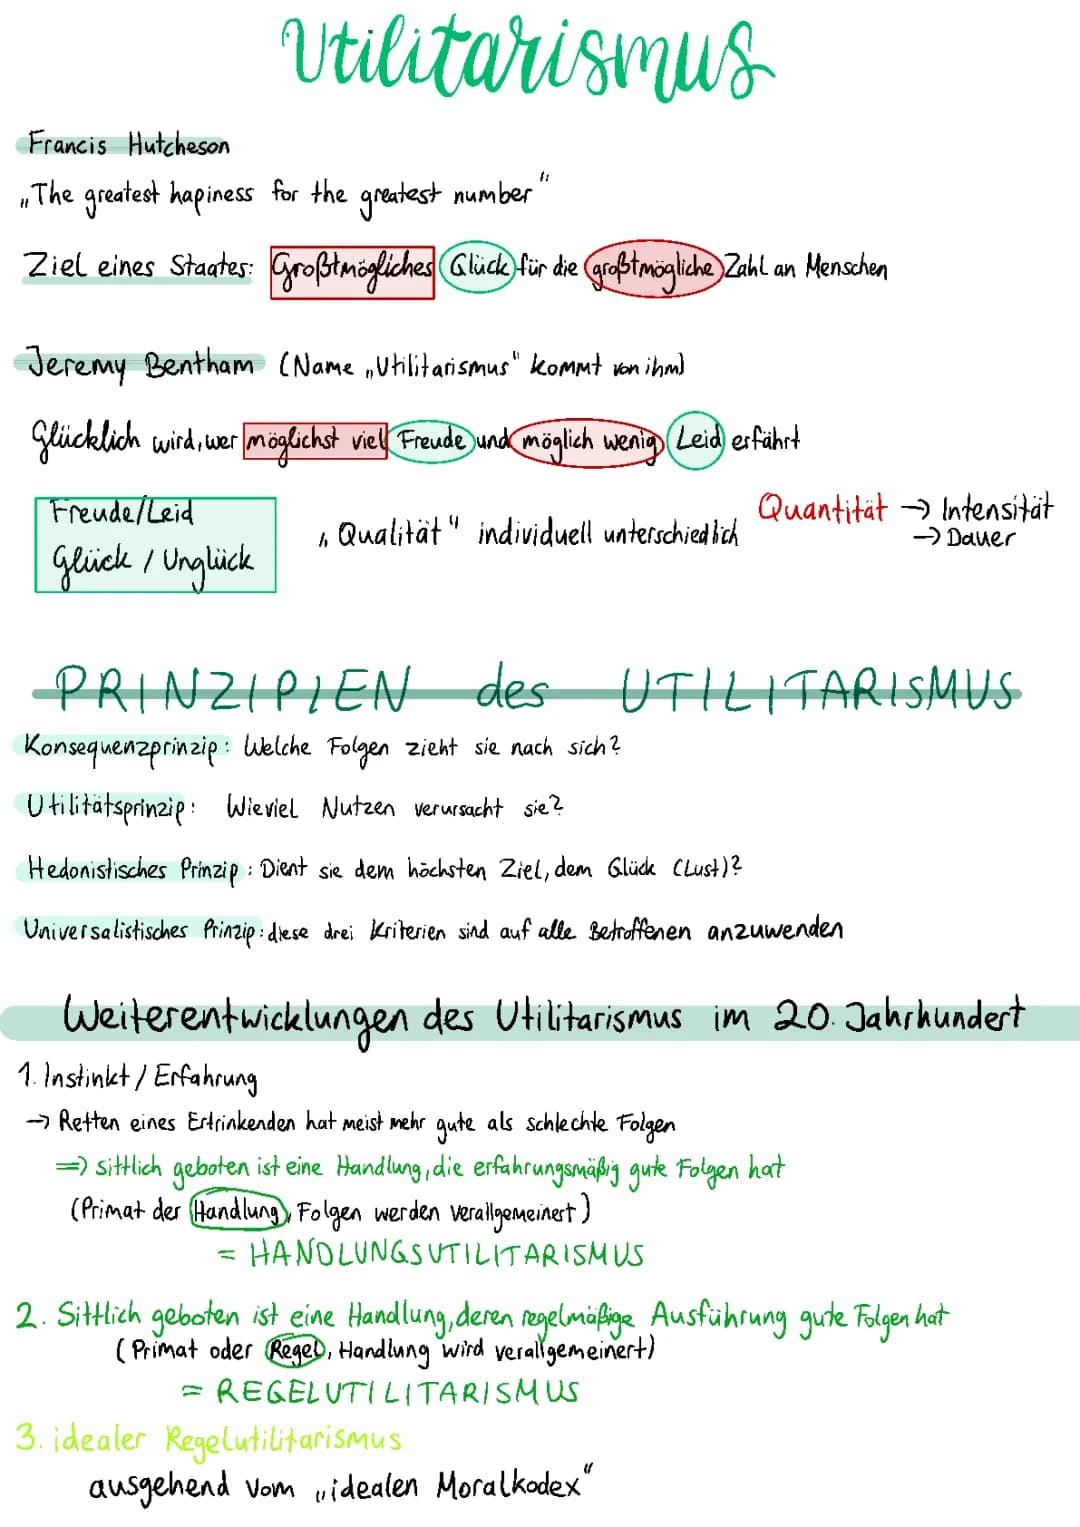 Utilitarismus
Francis Hutcheson
„The greatest hapiness for the greatest number"
Ziel eines Staates: Großtmögliches Glück für die großtmögliche Zahl an Menschen
Jeremy Bentham (Name „Utilitarismus" kommt von ihm)
Glücklich wird, wer möglichst viel Freude und möglich wenig Leid erfährt
Freude/Leid
Glück / Unglück
„Qualität" individuell unterschiedlich
Quantität → Intensität
→ Dauer
PRINZIPIEN des UTILITARISMUS
Konsequenzprinzip: Welche Folgen zieht sie nach sich?
Utilitätsprinzip: Wieviel Nutzen verursacht sie?
Hedonistisches Prinzip: Dient sie dem höchsten Ziel, dem Glück (Lust)?
Universalistisches Prinzip: diese drei Kriterien sind auf alle Betroffenen anzuwenden
Weiterentwicklungen des Utilitarismus im 20. Jahrhundert
1. Instinkt / Erfahrung
→ Retten eines Ertrinkenden hat meist mehr gute als schlechte Folgen
⇒ sittlich geboten ist eine Handlung, die erfahrungsmäßig gute Folgen hat
(Primat der Handlung, Folgen werden verallgemeinert)
= HANDLUNGSUTILITARISMUS
2. Sittlich geboten ist eine Handlung, deren regelmäßige Ausführung gute Folgen hat
(Primat oder Regel, Handlung wird verallgemeinert)
= REGELUTILITARISMUS
3. idealer Regelutilitarismus
ausgehend vom „idealen Moralkodex"